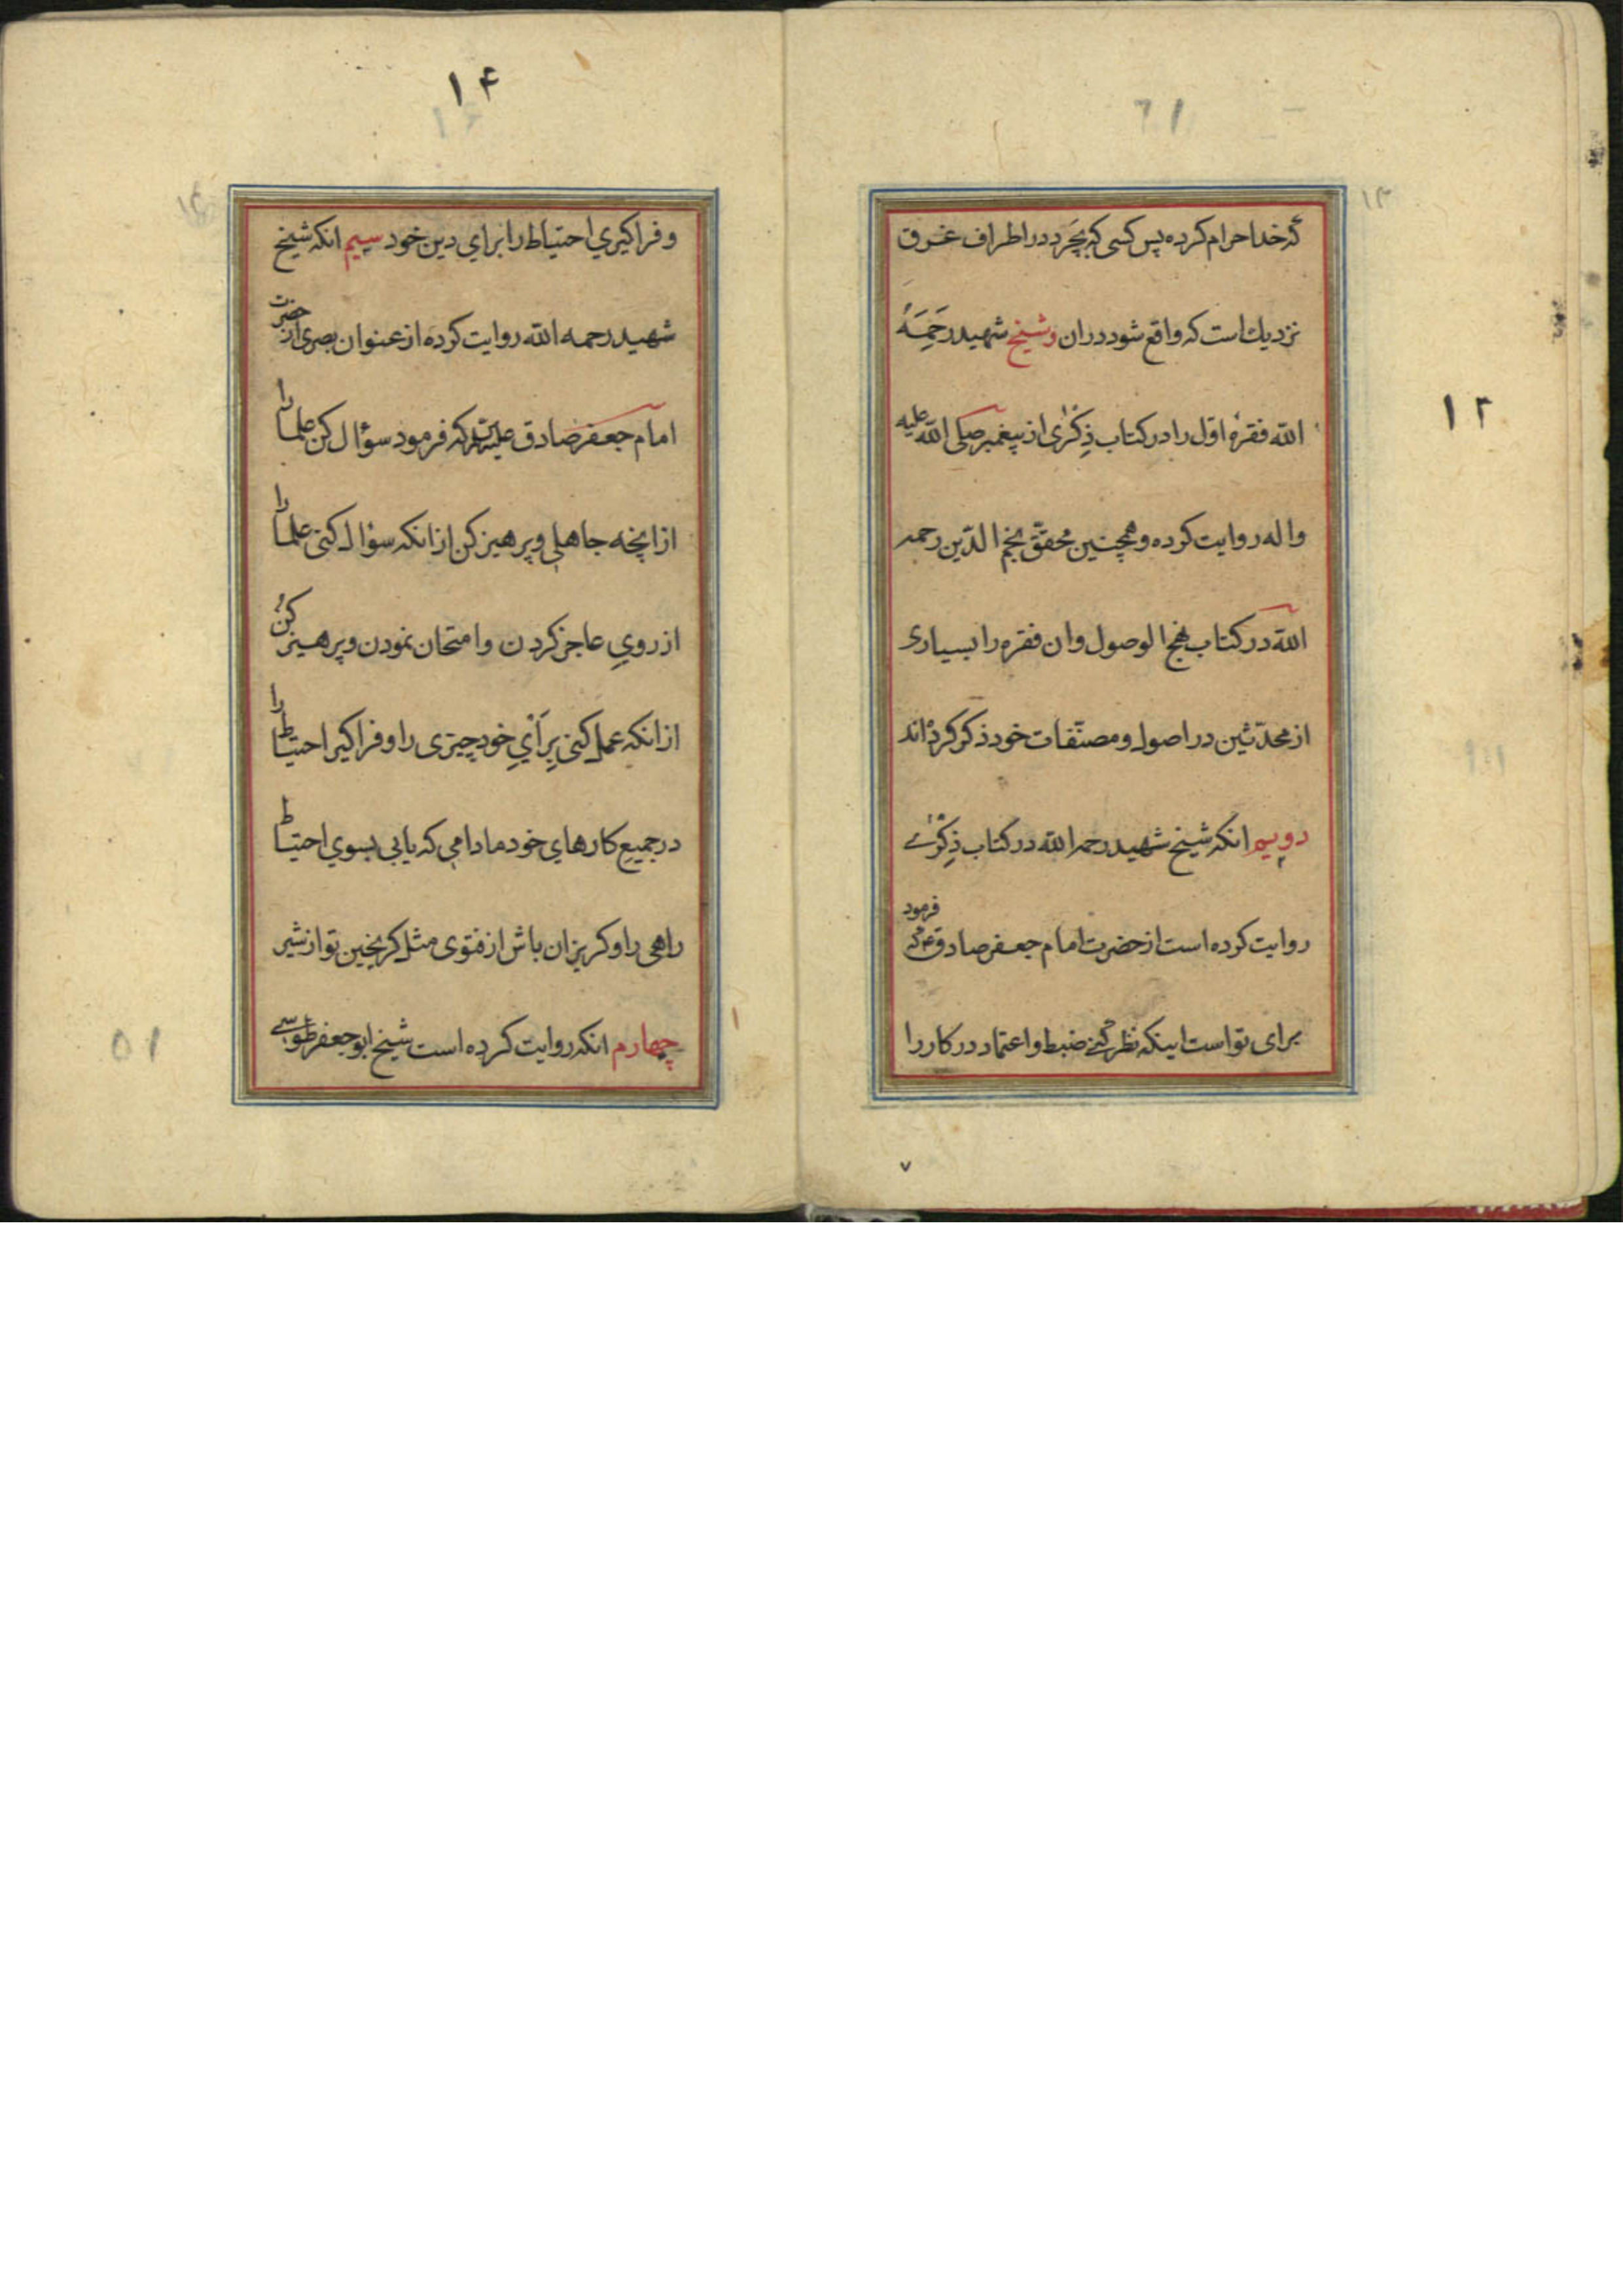 ۱۳
۱۲
که خدا حرام کرده پس کسی که بچرد در اطراف غرق
نزدیك است که واقع شود دران و شیخ شهید رَحِمَهُ
الله فقرهٔ اوّل را در کتاب ذِکْریٰ از پیغمبر صلی الله علیه
واله روایت کرده و همچنین محقّق نجم الدّین رحمه
الله در کتاب نهج الوصول وان فقره را بسیاری
از محدّثین در اصول و مصنّفات خود ذکر کردهاند
دویم انکه شیخ شهید رحمه الله در کتاب ذِکْریٰ
روایت کرده است از حضرت امام جعفر صادق ع که فرمود
برای تو است اینکه نظر کنی ضبط و اعتماد در کار را
۷
۱۴
و فراکیري احتیاط را براي دین خود سیم انکه شیخ
شهید رحمه الله روایت کرده از عنوان بصری از حضرت
امام جعفر صادق که فرمود سؤال کن علما را
از انچه جاهلی و پرهیز کن از انکه سؤال کنی علما را
از رويِ عاجز کردن وامتحان نمودن و پرهیز کن
از انکه عمل کنی بِرَأيِ خود چیزی را و فراکیر احتیاط را
در جمیع کارهاي خود مادامی که یابی بسوي احتیاط
راهی را و کریزان باش از فتوی مثل کریختن تو از شیر
چهارم انکه روایت کرده است شیخ ابو جعفر طوسی